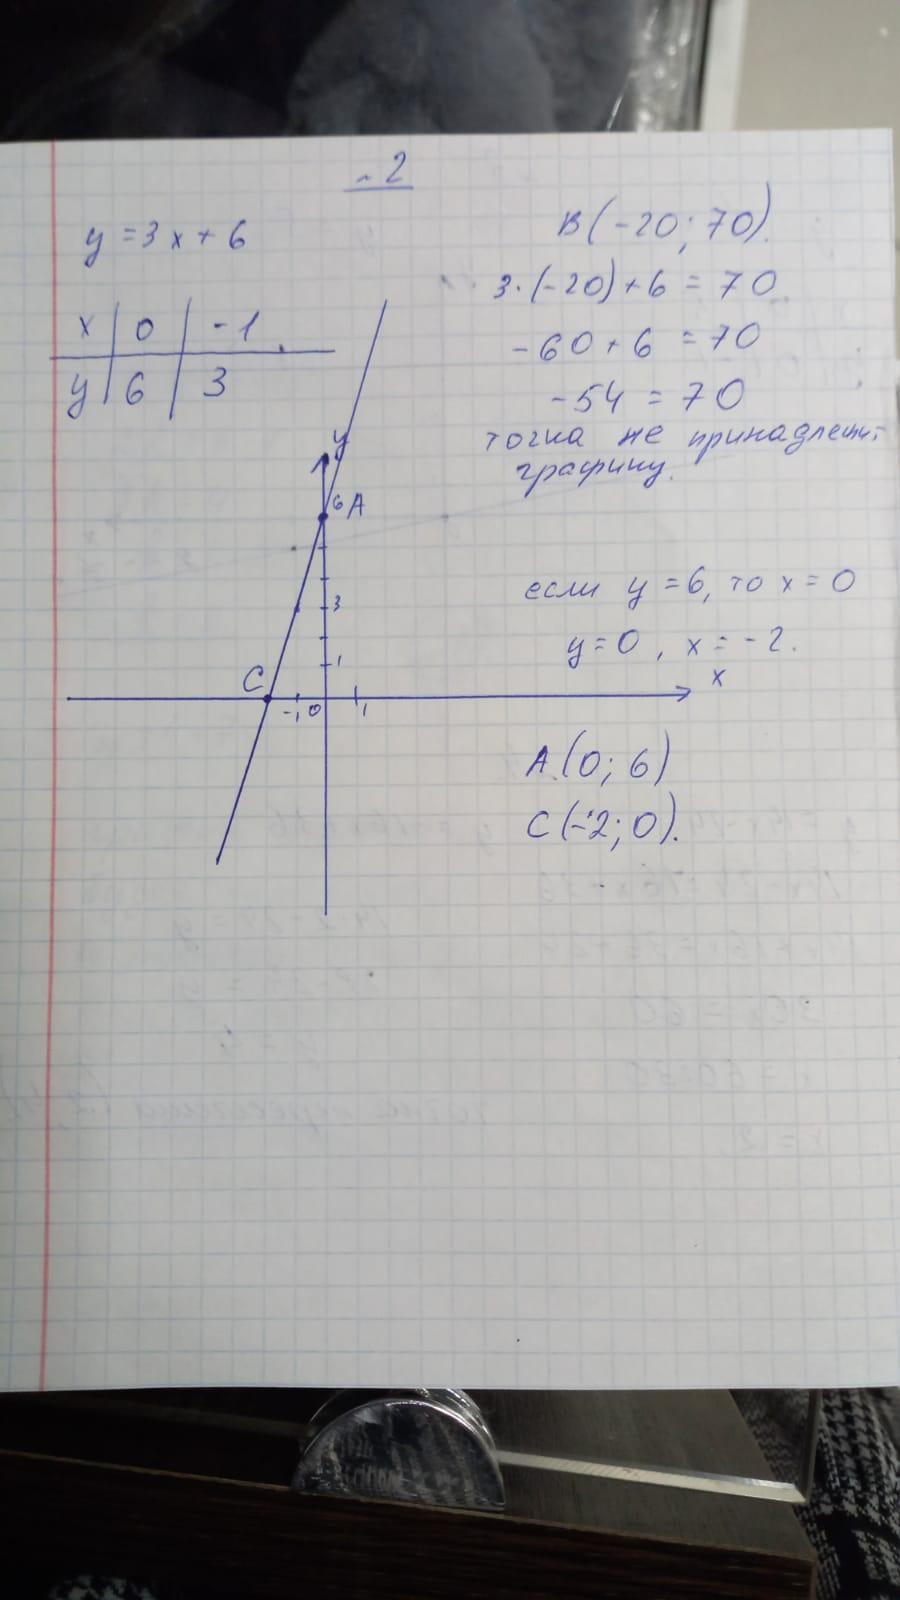 ~ 2
y = 3x + 6
x | 0 | -1
y | 6 | 3
B(-20; 70).
3·(-20)+6 = 70
-60+6 = 70
-54 = 70
точка не принадлежит
графику.
y
6 A
3
1
C
-1 0 1
x
если y = 6, то x = 0
y = 0, x = -2.
A(0; 6)
C(-2; 0).